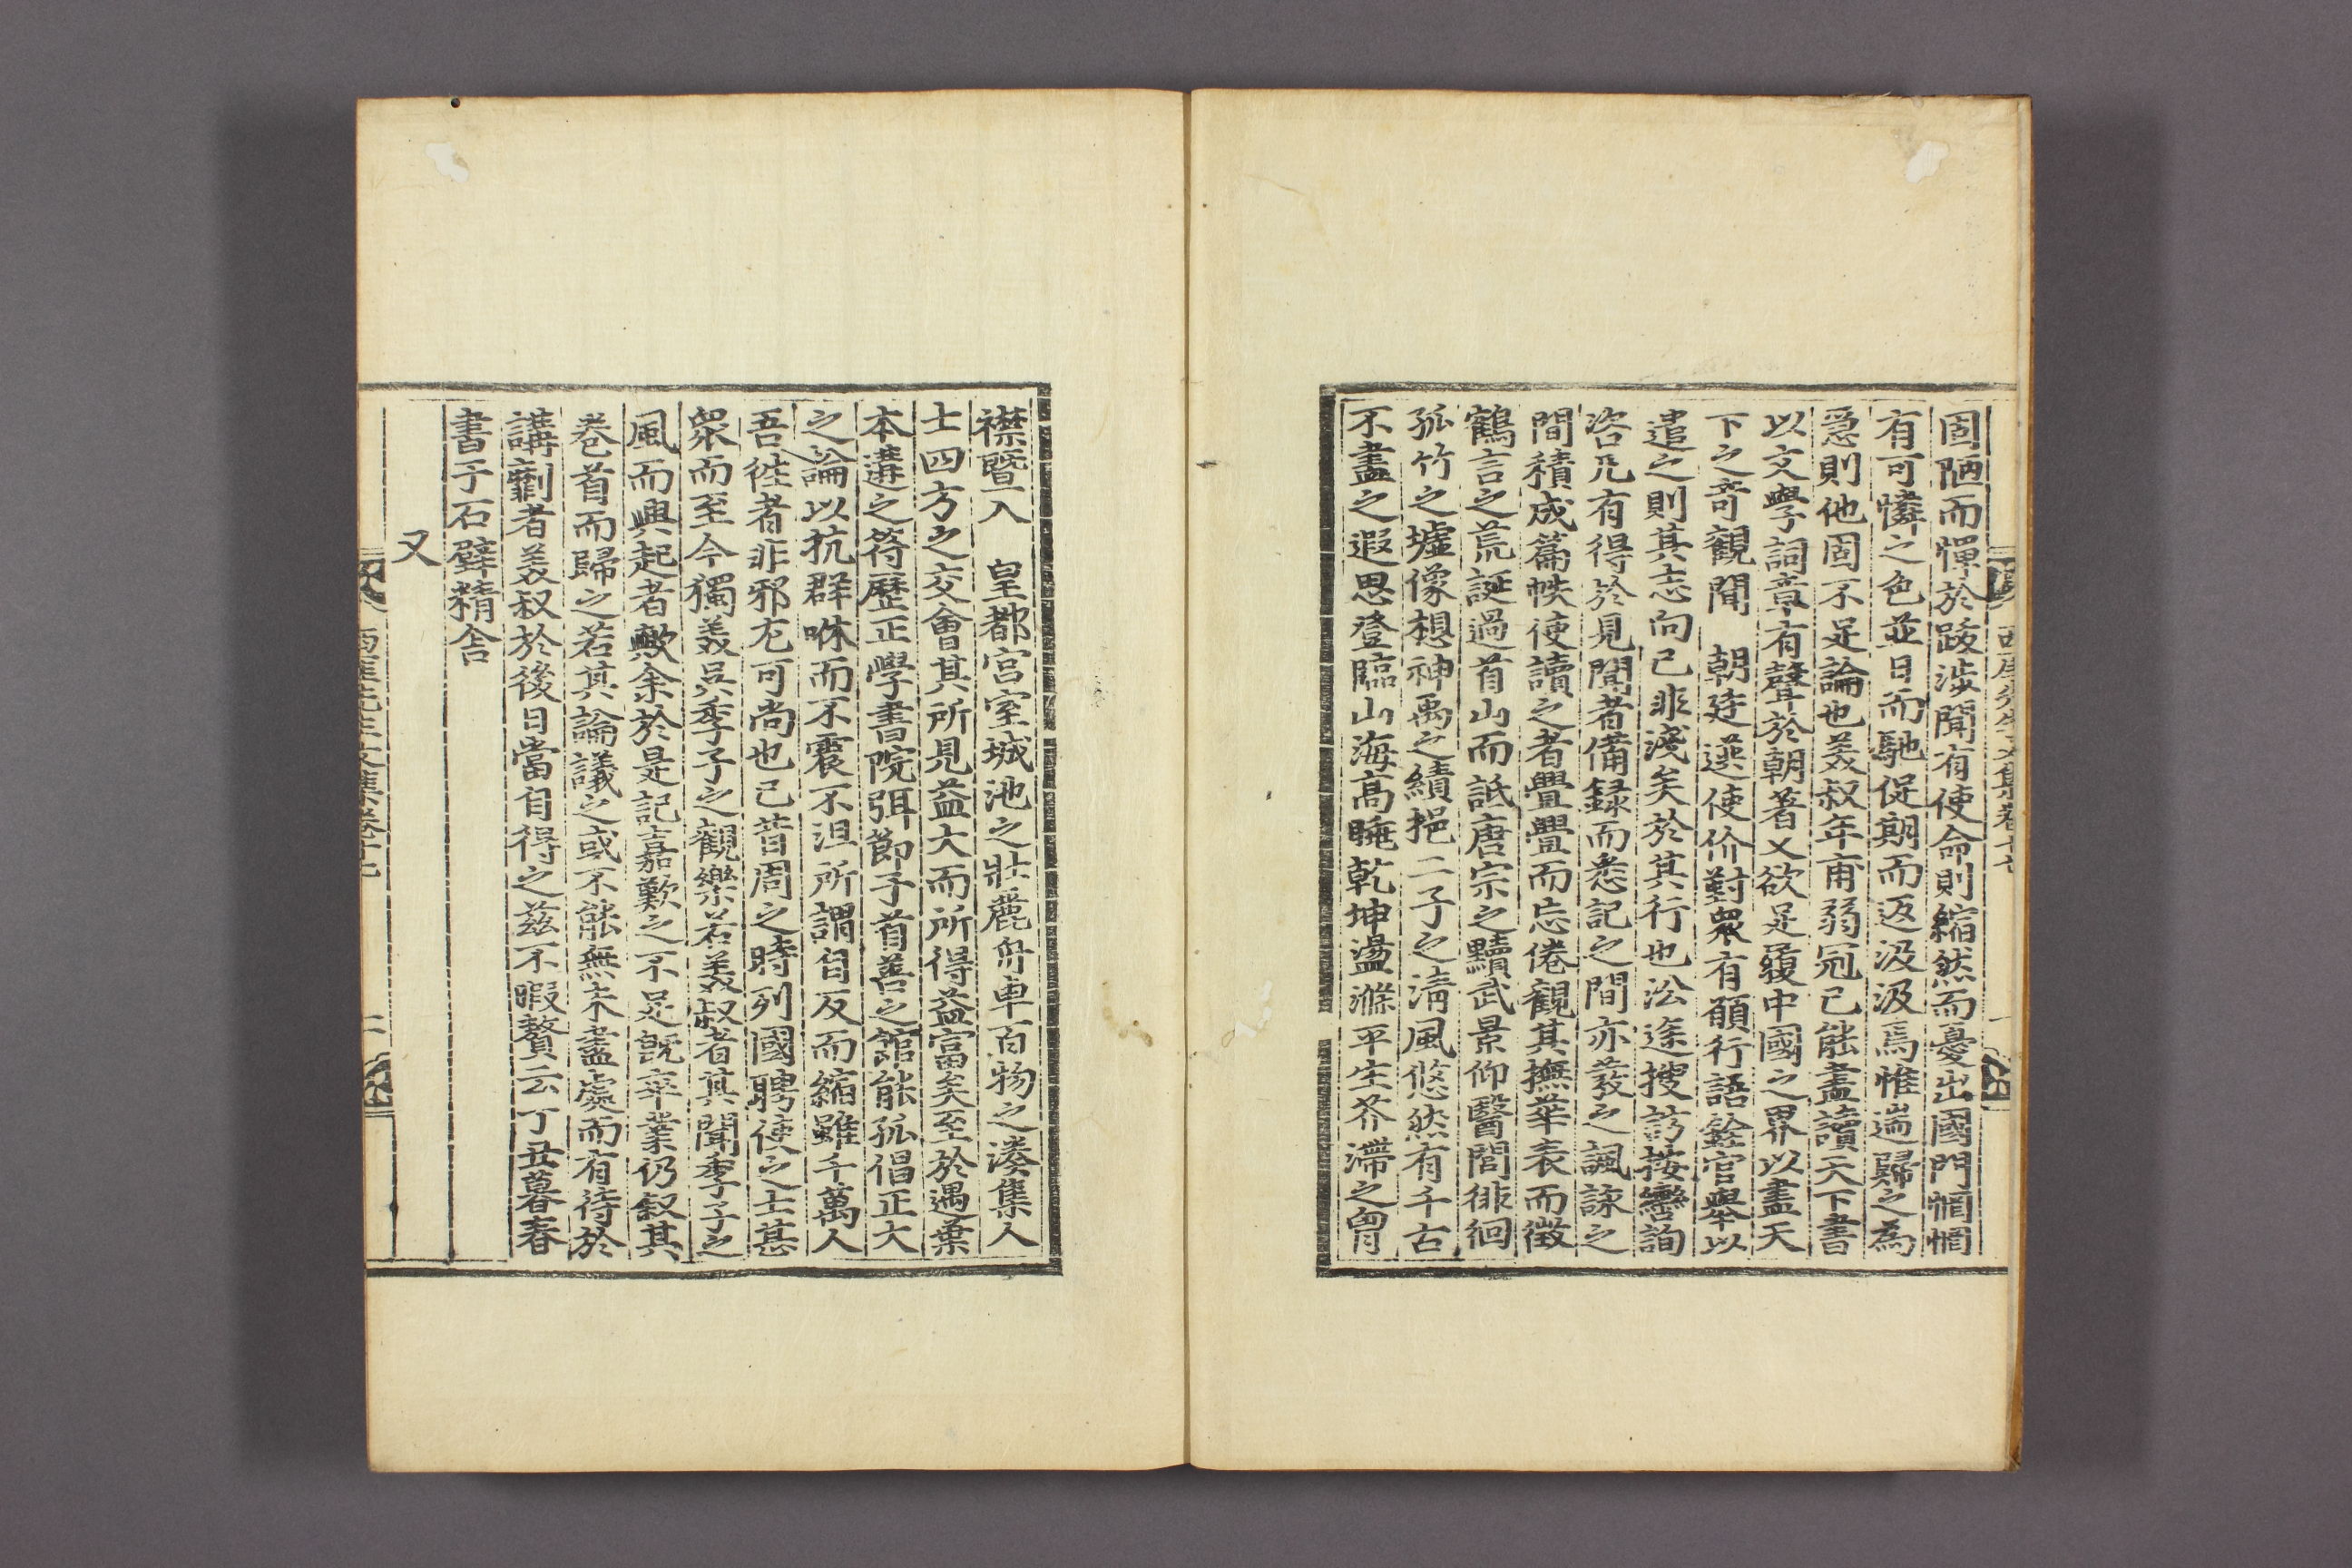 固陋而憚於跋涉聞有使命則縮然而憂出國門悒悒
有可憐之色並日而馳促期而返汲汲焉惟遄歸之為
急則他固不足論也美叔年甫弱冠已能盡讀天下書
以文學詞章有聲於朝著又欲足履中國之界以盡天
下之奇觀聞 朝廷選使价對衆有願行語銓官擧以
遣之則其志向已非淺矣於其行也沿途搜訪按轡詢
咨凡有得於見聞者備録而悉記之間亦發之諷詠之
間積成篇帙使讀之者亹亹而忘倦觀其撫華表而徵
鶴言之荒誕過首山而詆唐宗之黷武景仰醫閭徘徊
孤竹之墟像想神禹之績挹二子之淸風悠然有千古
不盡之遐思登臨山海高睡乾坤盪滌平生芥滯之胷
襟曁入 皇都宮室城池之壯麗舟車百物之湊集人
士四方之交會其所見益大而所得益富矣至於遇葉
本遘之符歷正學書院弭節于首善之館能孤倡正大
之論以抗群咻而不震不沮所謂自反而縮雖千萬人
吾徃者非邪尤可尚也已昔周之時列國聘使之士甚
衆而至今獨美吳季子之觀樂若美叔者其聞季子之
風而興起者歟余於是記嘉歎之不足旣卒業仍敍其
卷首而歸之若其論議之或不能無未盡處而有待於
講劘者美叔於後日當自得之茲不暇贅云丁丑暮春
書于石壁精舍
又
西厓先生文集卷十七 二